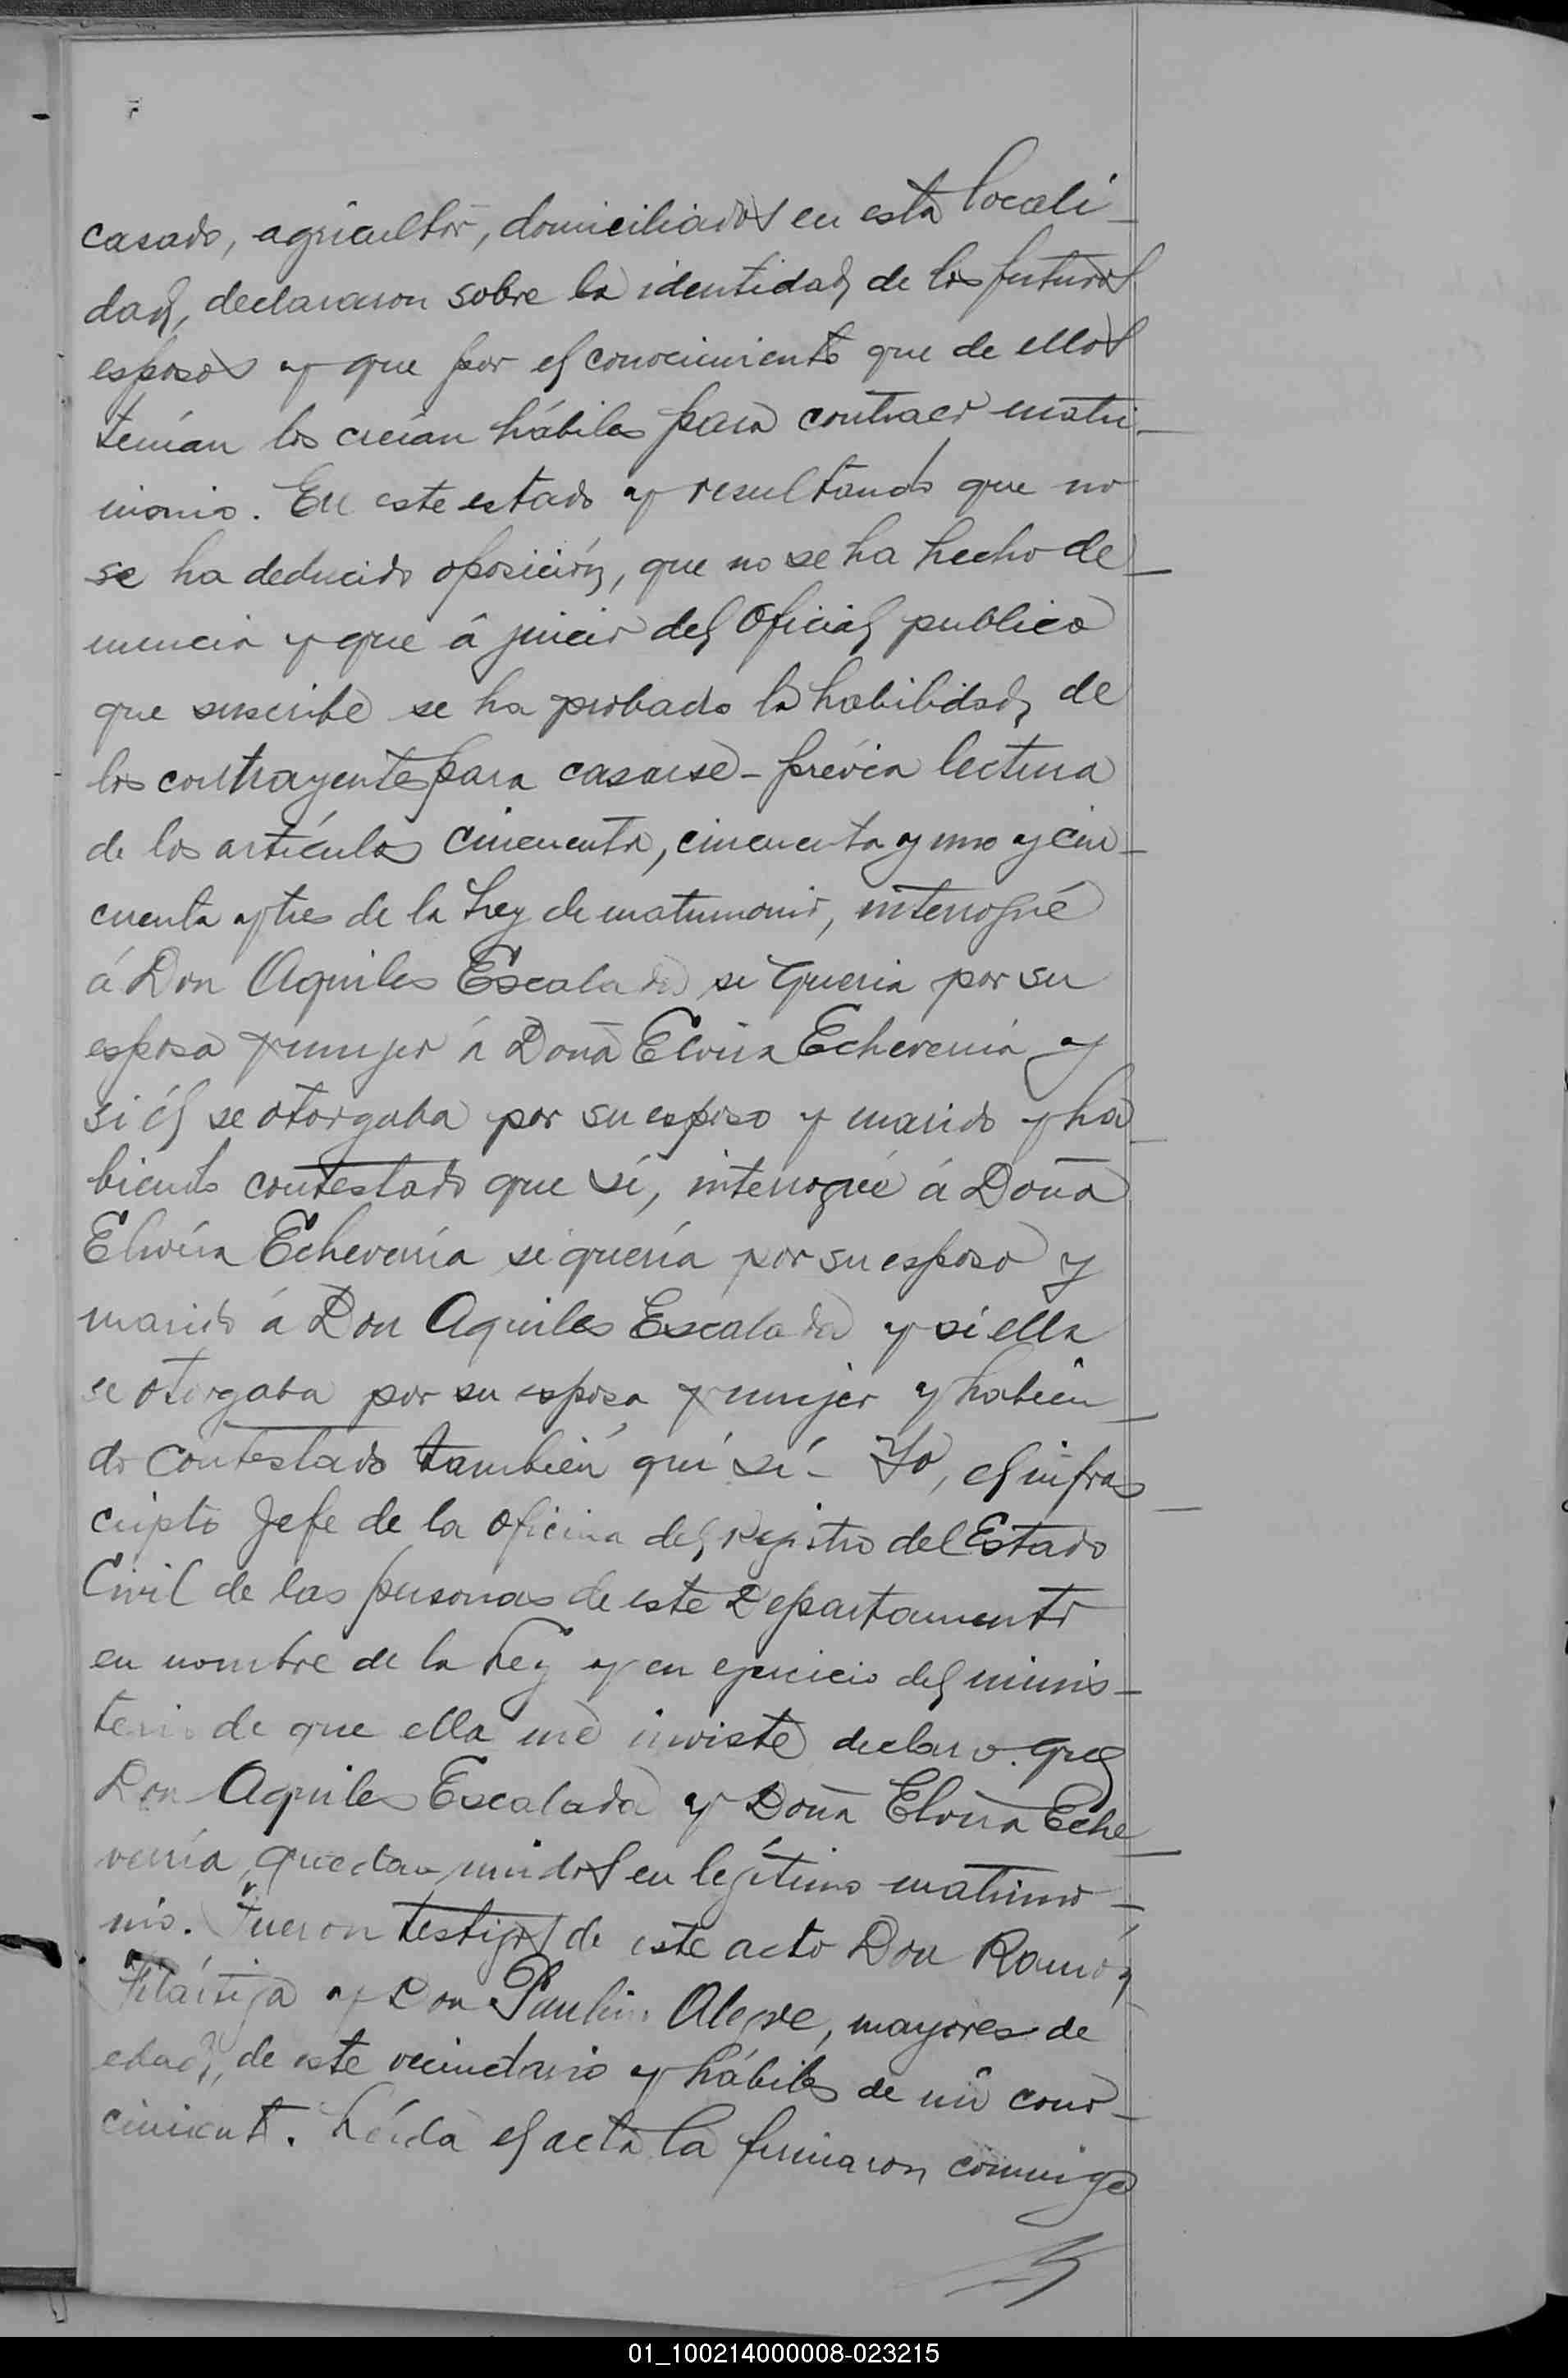 casado, agricultor, domiciliados en esta locali-
dad, declararon sobre la identidad de los futuros
esposos y que por el conocimiento que de ellos
tenían los creían hábiles para contraer matri-
monio. En este estado y resultando que no
se ha deducido oposición, que no se ha hecho de-
nuncia y que á juicio del Oficial publico
que suscribe se ha probado la habilidad de
los contrayentes para casarse - prévia lectura
de los artículos cincuenta, cincuenta y uno y cin-
cuenta y tres de la Ley de matrimonio, interrogué
á Don Aquiles Escalada si queria por su
esposa y mujer á Doña Elvira Echeverría y
si él se otorgaba por su esposo y marido y ha-
biendo contestado que sí, interrogué á Doña
Elvira Echeverría si quería por su esposo y
marido á Don Aquiles Escalada y si ella
se otorgaba por su esposa y mujer y habien-
do contestado también que sí - Yo, el infras-
cripto Jefe de la Oficina del Registro del Estado
Civil de las personas de este Departamento
en nombre de la Ley y en ejercicio del minis-
terio de que ella me inviste declaro que
Don Aquiles Escalada y Doña Elvira Eche-
verría quedan unidos en legítimo matrimo-
nio. Fueron testigos de este acto Don Ramón
y Don Paulino Alegre, mayores de
edad, de este vecindario y hábiles de mi cono-
cimiento. Leída el acta la firmaron conmigo
01_100214000008-023215